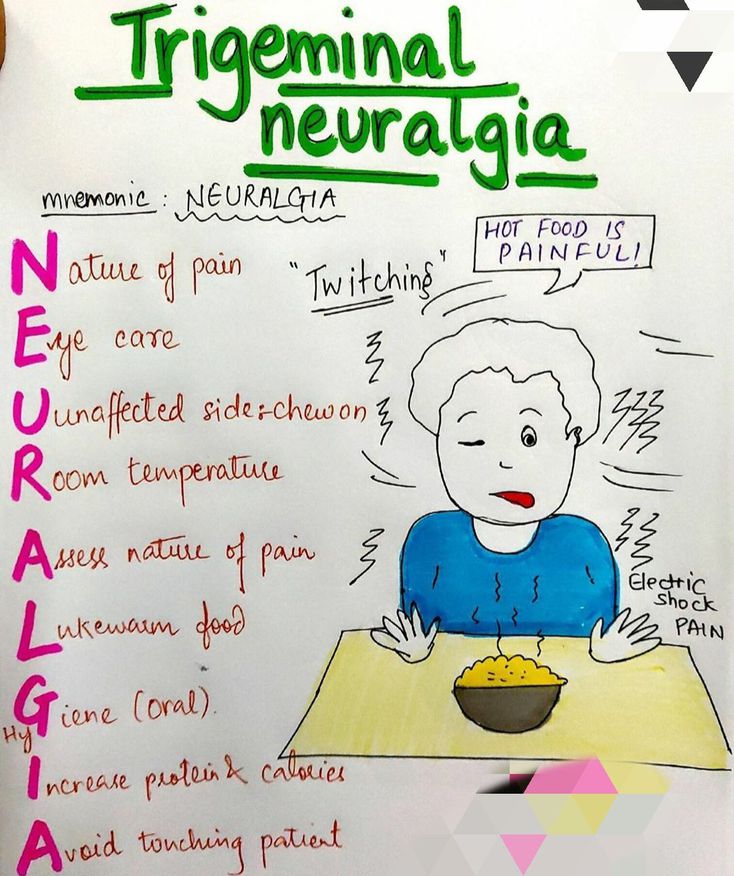 Trigeminal
neuralgia
mnemonic : NEURALGIA
Nature of pain
Eye care
Uunaffected side:-chew on
Room temperature
Assess nature of pain
Lukewarm food
HyGiene (oral).
Increase protein & calories
Avoid touching patient
"Twitching"
HOT FOOD IS
PAINFUL!
Electric
shock
PAIN